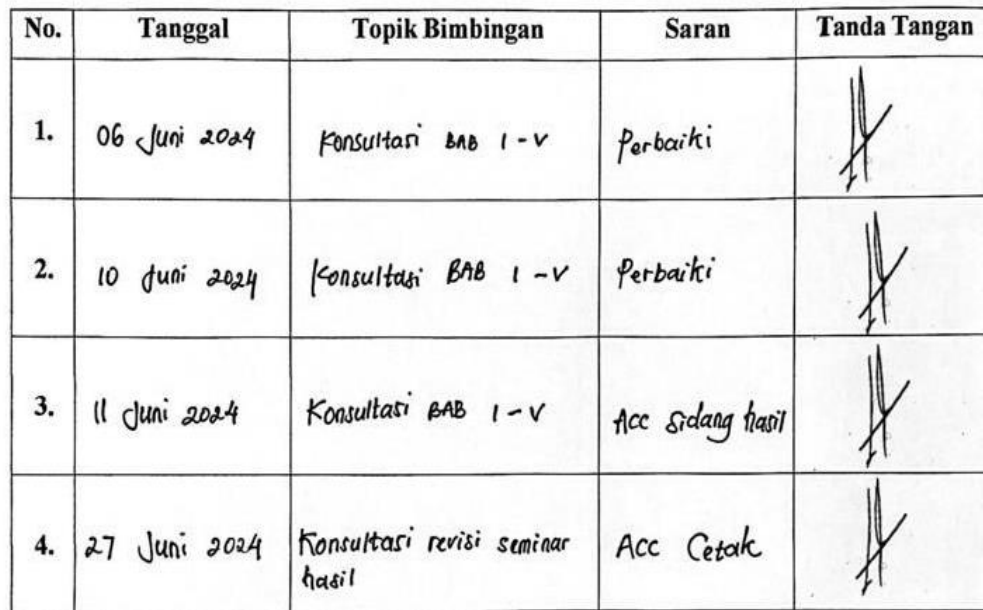 No. Tanggal Topik Bimbingan Saran Tanda Tangan
1. 06 Juni 2024 Konsultasi BAB I - V Perbaiki
2. 10 Juni 2024 Konsultasi BAB I - V Perbaiki
3. 11 Juni 2024 Konsultasi BAB I - V Acc Sidang hasil
4. 27 Juni 2024 Konsultasi revisi seminar Acc Cetak
hasil